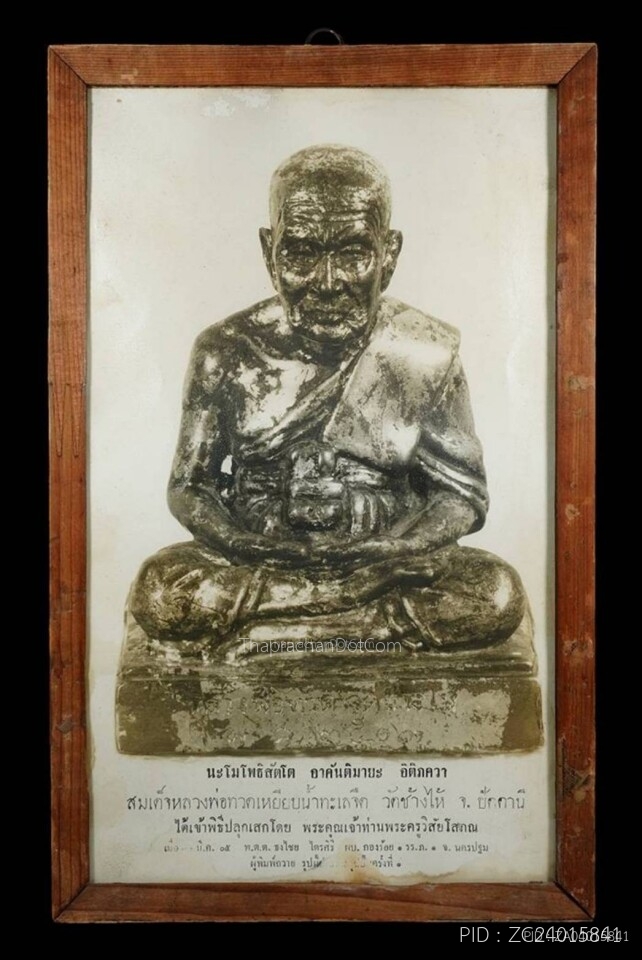 ThaprachanDotCom
นะโมโพธิสัตโต อาคันติมายะ อิติภควา
สมเด็จหลวงพ่อทวดเหยียบน้ำทะเลจืด วัดช้างไห้ จ. ปัตตานี
ได้เข้าพิธีปลุกเสกโดย พระคุณเจ้าท่านพระครูวิสัยโสภณ
มี.ค. ๑๕ พ.ต.ต. ธงไชย ไตรศิริ ผบ. กองร้อย ๑ รร.ภ. ๑ จ. นครปฐม
ผู้พิมพ์ถวาย ครั้งที่ ๑
PID : ZC24015841